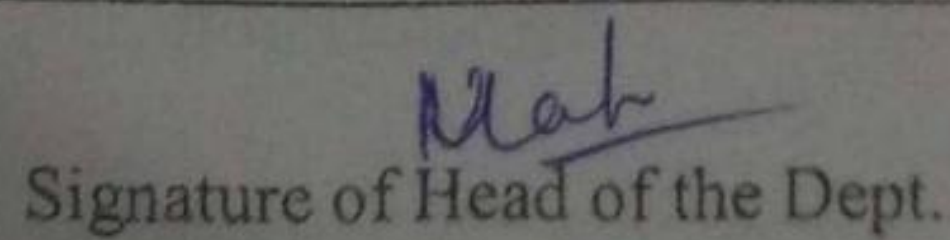 Signature of Head of the Dept.